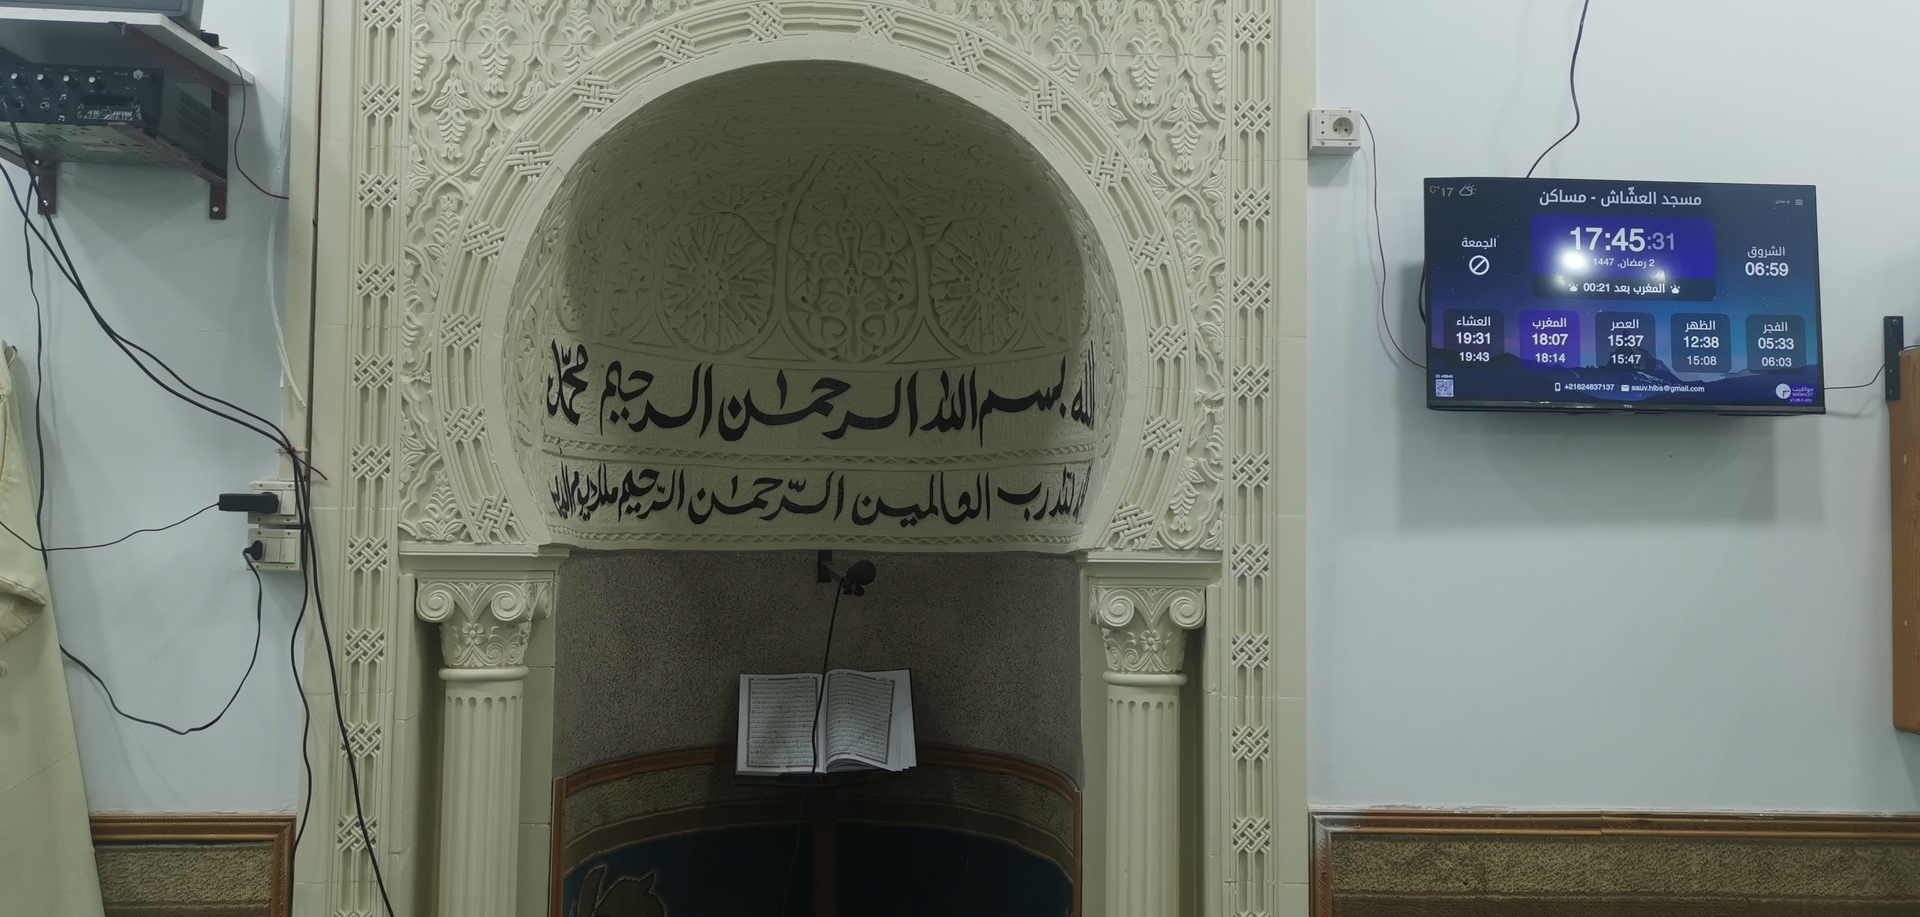 الله بسم الله الرحمٰن الرحيم محمّد
لله رب العالمين الرّحمٰن الرّحيم ملك يوم الدين
C°17
مسجد العشّاش - مساكن
17:45:31
2 رمضان, 1447
المغرب بعد 00:21
الجمعة
الشروق
06:59
الفجر
05:33
06:03
الظهر
12:38
15:08
العصر
15:37
15:47
المغرب
18:07
18:14
العشاء
19:31
19:43
+21624837137 sauv.hiba@gmail.com
مواقيت
MAWAQIT
TCL